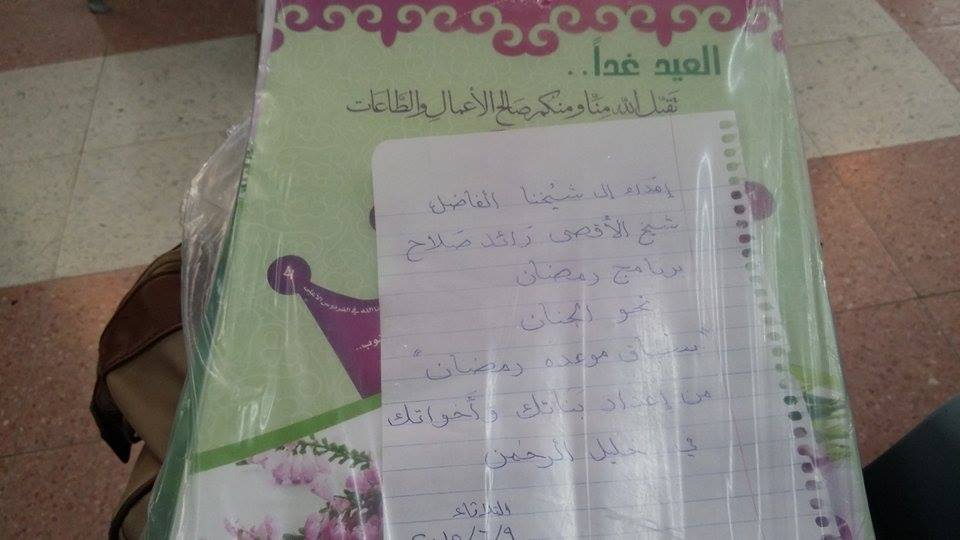 العيد غداً..
تقبّل الله منّا ومنكم صالح الأعمال والطّاعات
إهداء إلى شيخنا الفاضل
شيخ الأقصى رائد صلاح
برنامج رمضان
نحو الجنان
" موعده رمضان "
من إعداد بناتك وأخواتك
في خليل الرحمن
الثلاثاء
٢٠١٥/٦/٩
الله في الفردوس الأعلى